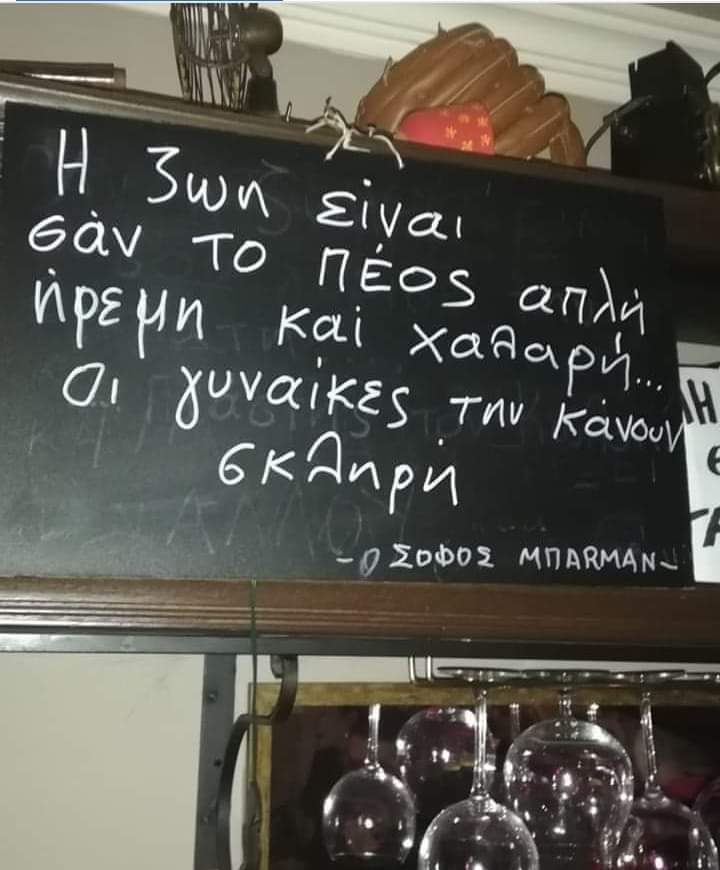 Η ζωη είναι
σάν το πέος απλή
ήρεμη καί χαλαρή...
Οι γυναίκες την κάνουν
σκληρή
-Ο ΣΟΦΟΣ ΜΠΑRΜΑΝ-